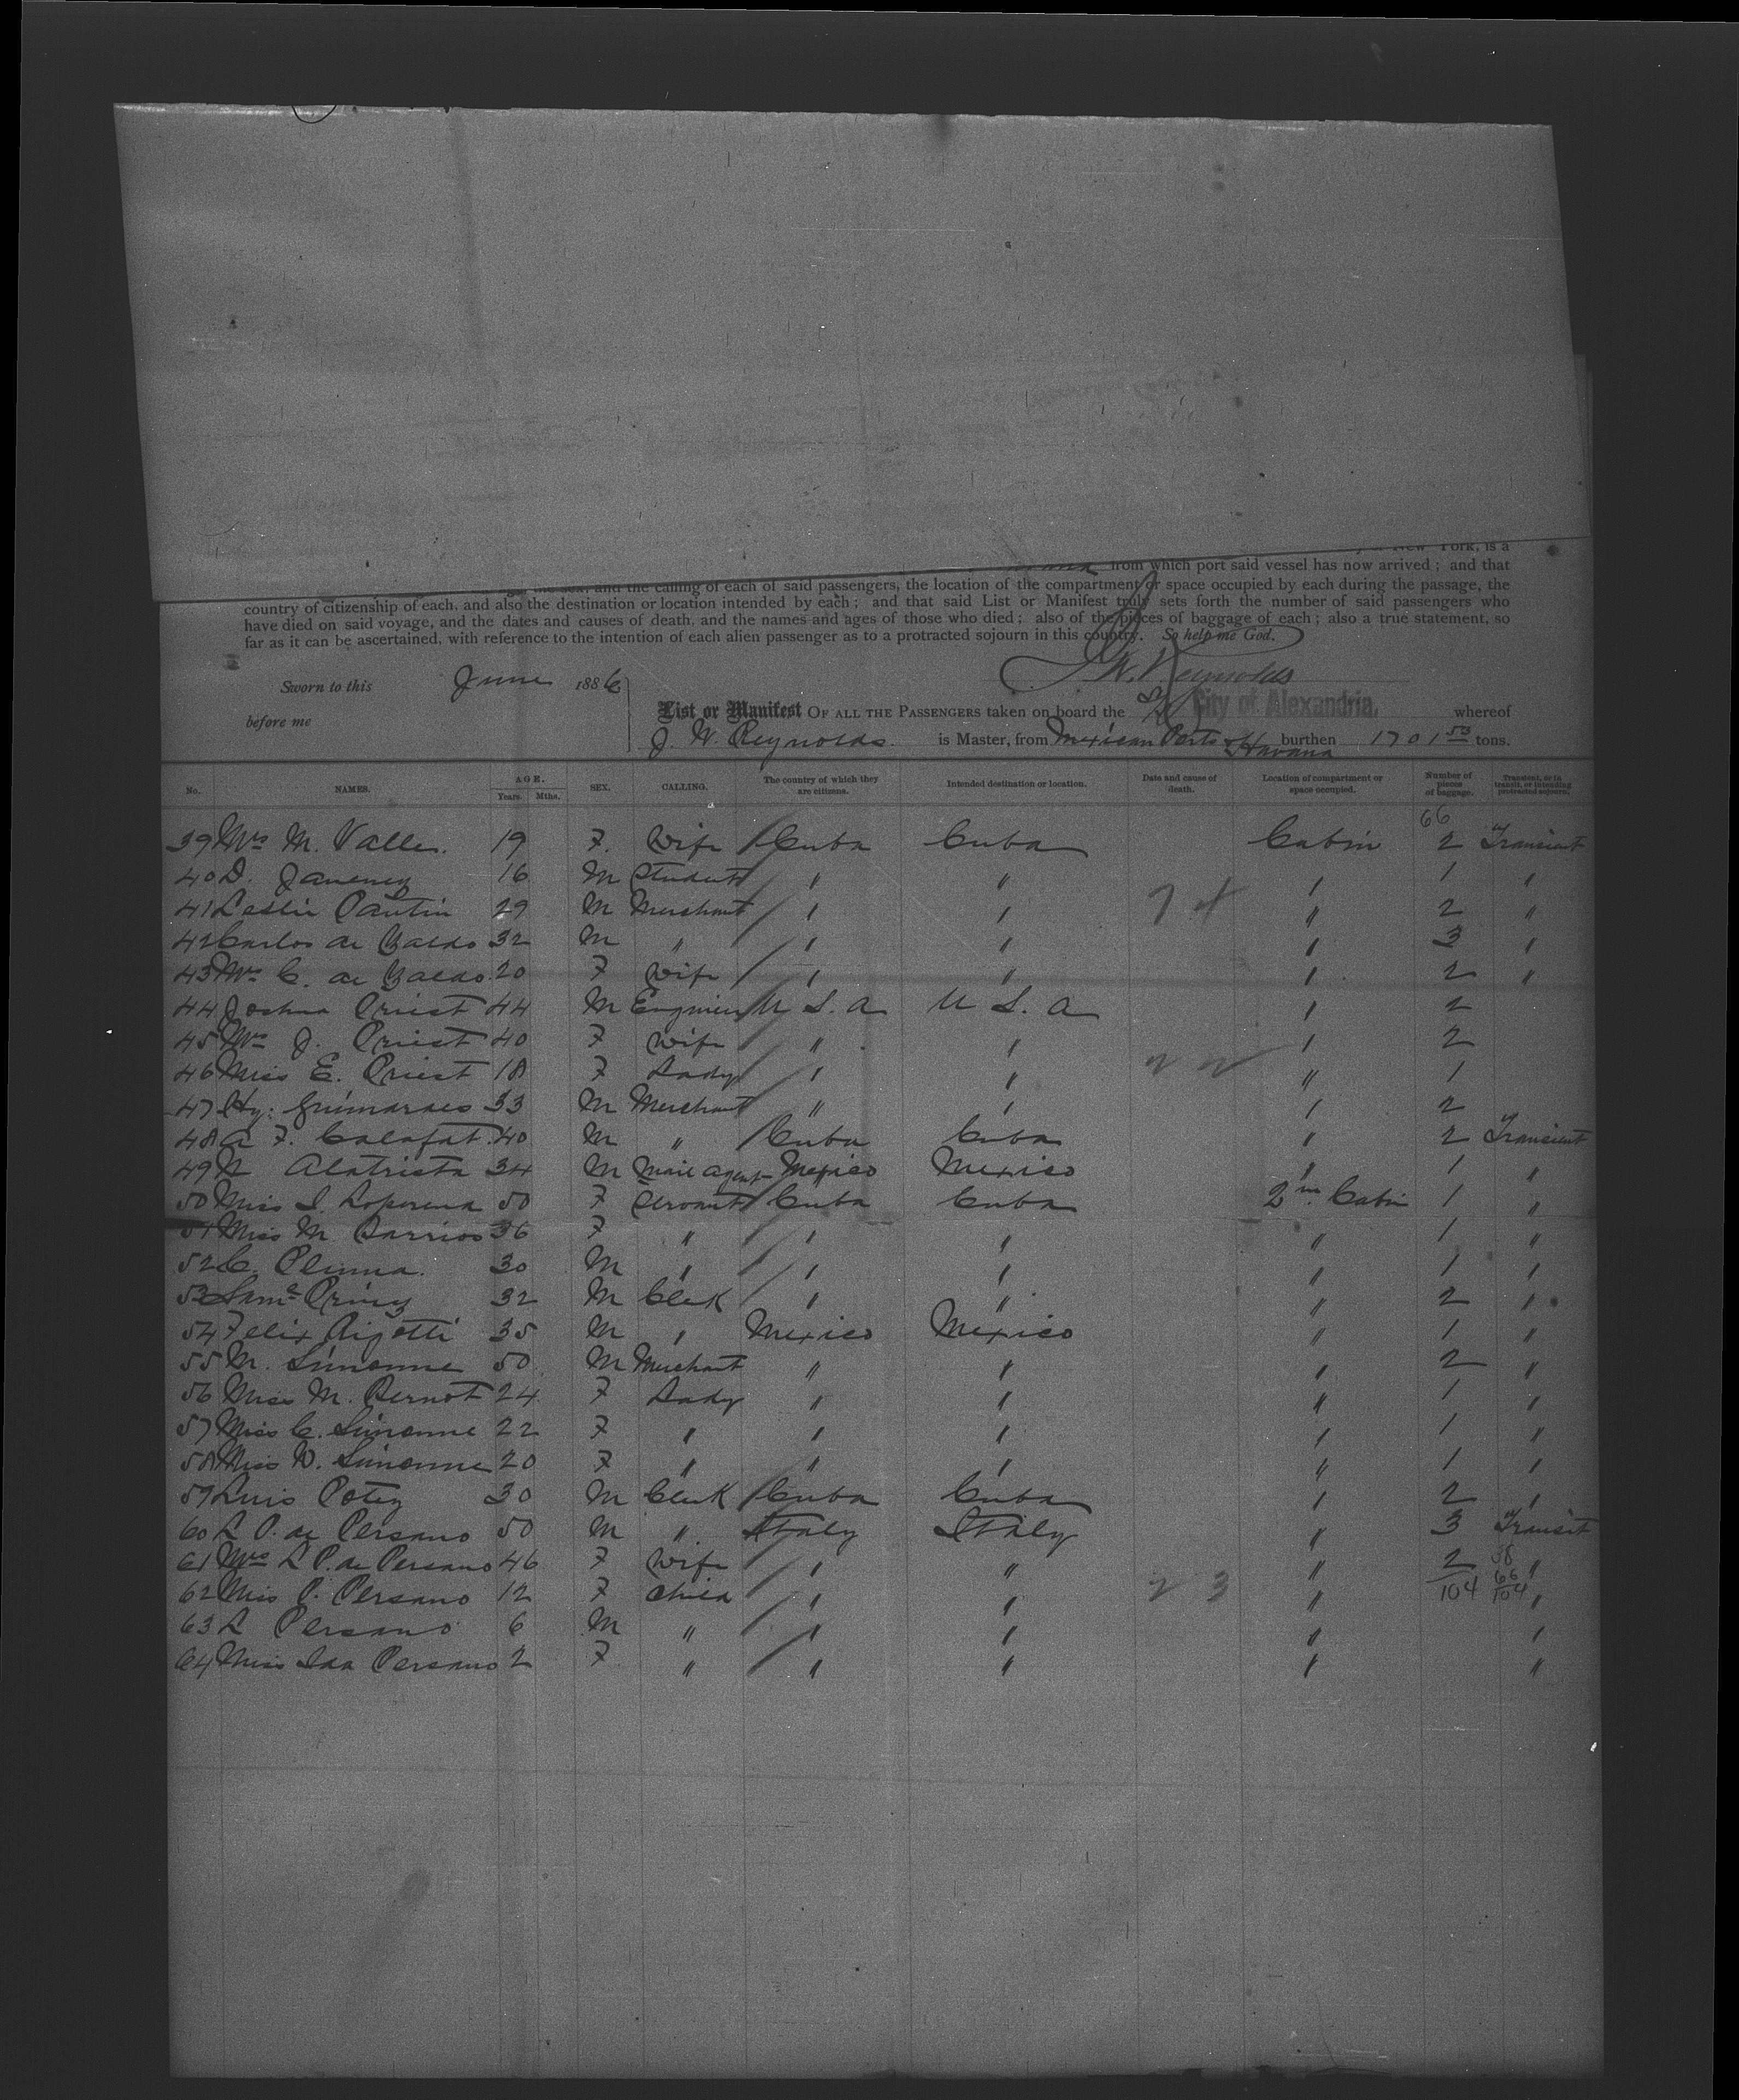 New York, is a
from which port said vessel has now arrived; and that
and the calling of each of said passengers, the location of the compartment or space occupied by each during the passage, the
country of citizenship of each, and also the destination or location intended by each; and that said List or Manifest truly sets forth the number of said passengers who
have died on said voyage, and the dates and causes of death, and the names and ages of those who died; also of the pieces of baggage of each; also a true statement, so
far as it can be ascertained, with reference to the intention of each alien passenger as to a protracted sojourn in this country. So help me God.
J. W. Reynolds
Sworn to this June 1886
before me
List or Manifest OF ALL THE PASSENGERS taken on board the City of Alexandria, whereof
J. W. Reynolds. is Master, from Mexican Ports & Havana burthen 1701 53 tons.
No. NAMES. AGE. Years. Mths. SEX. CALLING. The country of which they are citizens. Intended destination or location. Date and cause of death. Location of compartment or space occupied. Number of pieces of baggage. Transient, or in transit, or intending protracted sojourn.
66
39 Mrs M. Valle. 19 F. Wife Cuba Cuba Cabin 2 Transient
40 D. 16 M Student " " " 1 "
41 Leslie Pantin 29 M Merchant " " " 2 "
42 Carlos de Zaldo 32 M " " " " 3 "
43 Mrs C. de Zaldo 20 F Wife " " " 2 "
44 Joshua Priest 44 M Engineer U S. A U S. A " 2
45 Mrs J. Priest 40 F Wife " " " 2
46 Miss E. Priest 18 F Lady " " " 1
47 Hy: Guimaraes 33 M Merchant " " " 2
48 A F. Calafat. 40 M " Cuba Cuba " 2 Transient
49 N Alatrista 34 M Mail agent Mexico Mexico " 1 "
50 Miss 50 F Servant Cuba Cuba 2nd Cabin 1 "
51 Miss M Barrios 36 F " " " " 1 "
52 C. 30 M " " " " 1 "
53 Saml 32 M Clerk " " " 2 "
54 Felix Rigotti 35 M " Mexico Mexico " 1 "
55 M. Simonne 50 M Merchant " " " 2 "
56 Miss M. Bernot 24 F Lady " " " 1 "
57 Miss C. Simonne 22 F " " " " 1 "
58 Miss Simonne 20 F " " " " 1 "
59 Luis Potez 30 M Clerk Cuba Cuba " 2 "
60 L P. de Persano 50 M " Italy Italy " 3 Transit
61 Mrs L P. de Persano 46 F Wife " " " 2 38 "
62 Miss P. Persano 12 F Child " " " 104 66 104 "
63 L Persano 6 M " " " " "
64 Miss Ida Persano 2 F " " " " "